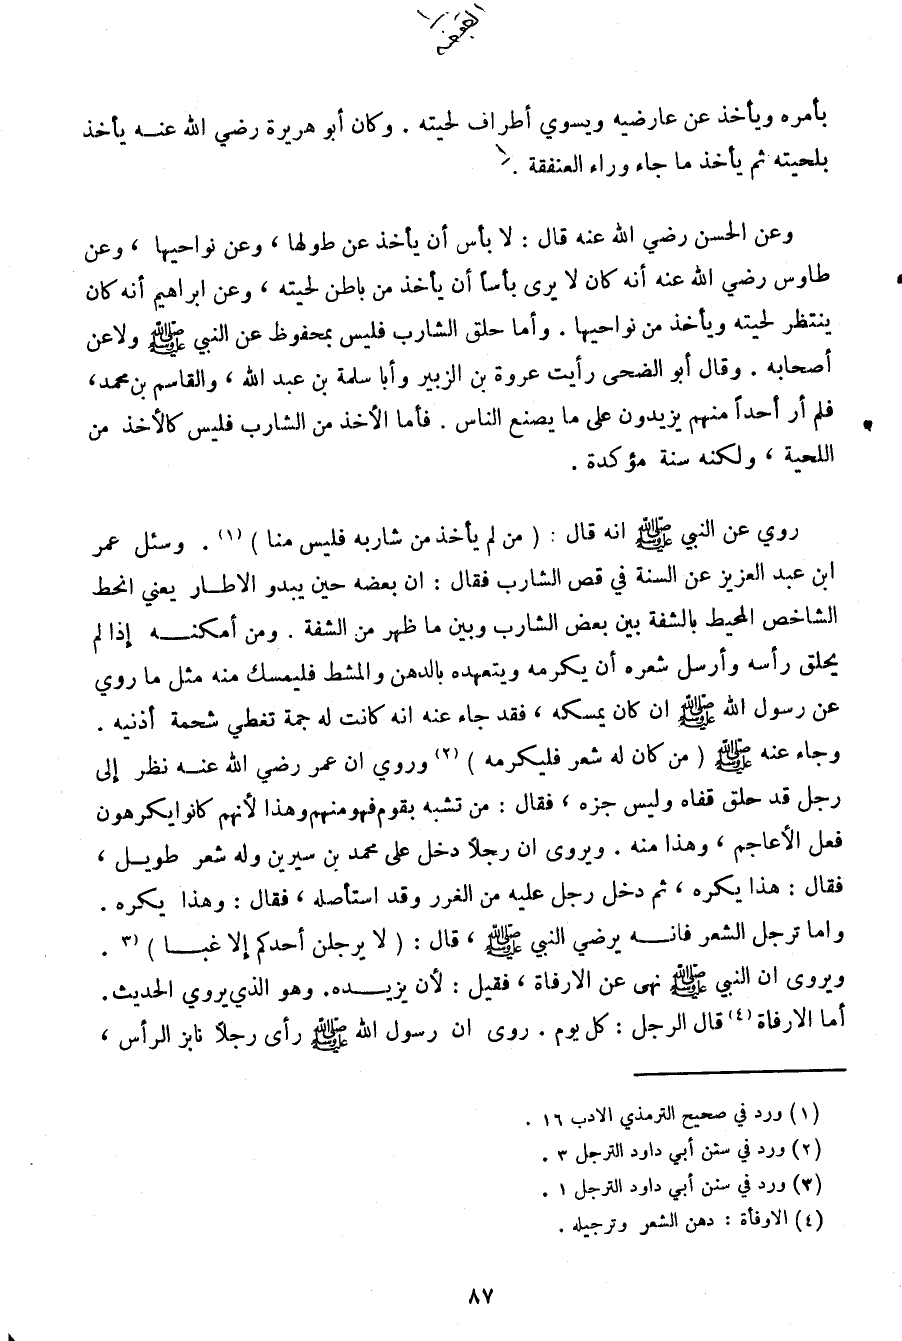 بأمره ويأخذ عن عارضيه ويسوي أطراف لحيته . وكان أبو هريرة رضي الله عنه يأخذ
بلحيته ثم يأخذ ما جاء وراء العنفقة .
وعن الحسن رضي الله عنه قال : لا بأس أن يأخذ عن طولها ، وعن نواحيها ، وعن
طاوس رضي الله عنه أنه كان لا يرى بأساً أن يأخذ من باطن لحيته ، وعن ابراهيم أنه كان
ينتظر لحيته ويأخذ من نواحيها . وأما حلق الشارب فليس بمحفوظ عن النبي ﷺ ولاعن
أصحابه . وقال أبو الضحى رأيت عروة بن الزبير وأبا سلمة بن عبد الله ، والقاسم بن محمد،
فلم أر أحداً منهم يزيدون على ما يصنع الناس . فأما الأخذ من الشارب فليس كالأخذ من
اللحية ، ولكنه سنة مؤكدة .
روي عن النبي ﷺ انه قال : ( من لم يأخذ من شاربه فليس منا ) (١) . وسئل عمر
ابن عبد العزيز عن السنة في قص الشارب فقال : ان بعضه حين يبدو الاطار يعني انحط
الشاخص المحيط بالشفة بين بعض الشارب وبين ما ظهر من الشفة . ومن أمكنه إذا لم
يحلق رأسه وأرسل شعره أن يكرمه ويتعهده بالدهن والمشط فليمسك منه مثل ما روي
عن رسول الله ﷺ ان كان يمسكه ، فقد جاء عنه انه كانت له جمة تغطي شحمة أذنيه .
وجاء عنه ﷺ ( من كان له شعر فليكرمه ) (٢) وروي ان عمر رضي الله عنه نظر إلى
رجل قد حلق قفاه وليس جزه ، فقال : من تشبه بقوم فهو منهم وهذا لأنهم كانوا يكرهون
فعل الأعاجم ، وهذا منه . ويروى ان رجلاً دخل على محمد بن سيرين وله شعر طويل ،
فقال : هذا يكره ، ثم دخل رجل عليه من الغرر وقد استأصله ، فقال : وهذا يكره .
واما ترجل الشعر فانه يرضي النبي ﷺ ، قال : ( لا يرجلن أحدكم إلا غبا ) (٣) .
ويروى ان النبي ﷺ نهى عن الارفاة ، فقيل : لأن يزيده. وهو الذي يروي الحديث.
أما الارفاة (٤) قال الرجل : كل يوم . روى ان رسول الله ﷺ رأى رجلاً نابز الرأس ،
(١) ورد في صحيح الترمذي الادب ١٦ .
(٢) ورد في سنن أبي داود الترجل ٣ .
(٣) ورد في سنن أبي داود الترجل ١ .
(٤) الاوفأة : دهن الشعر وترجيله .
٨٧